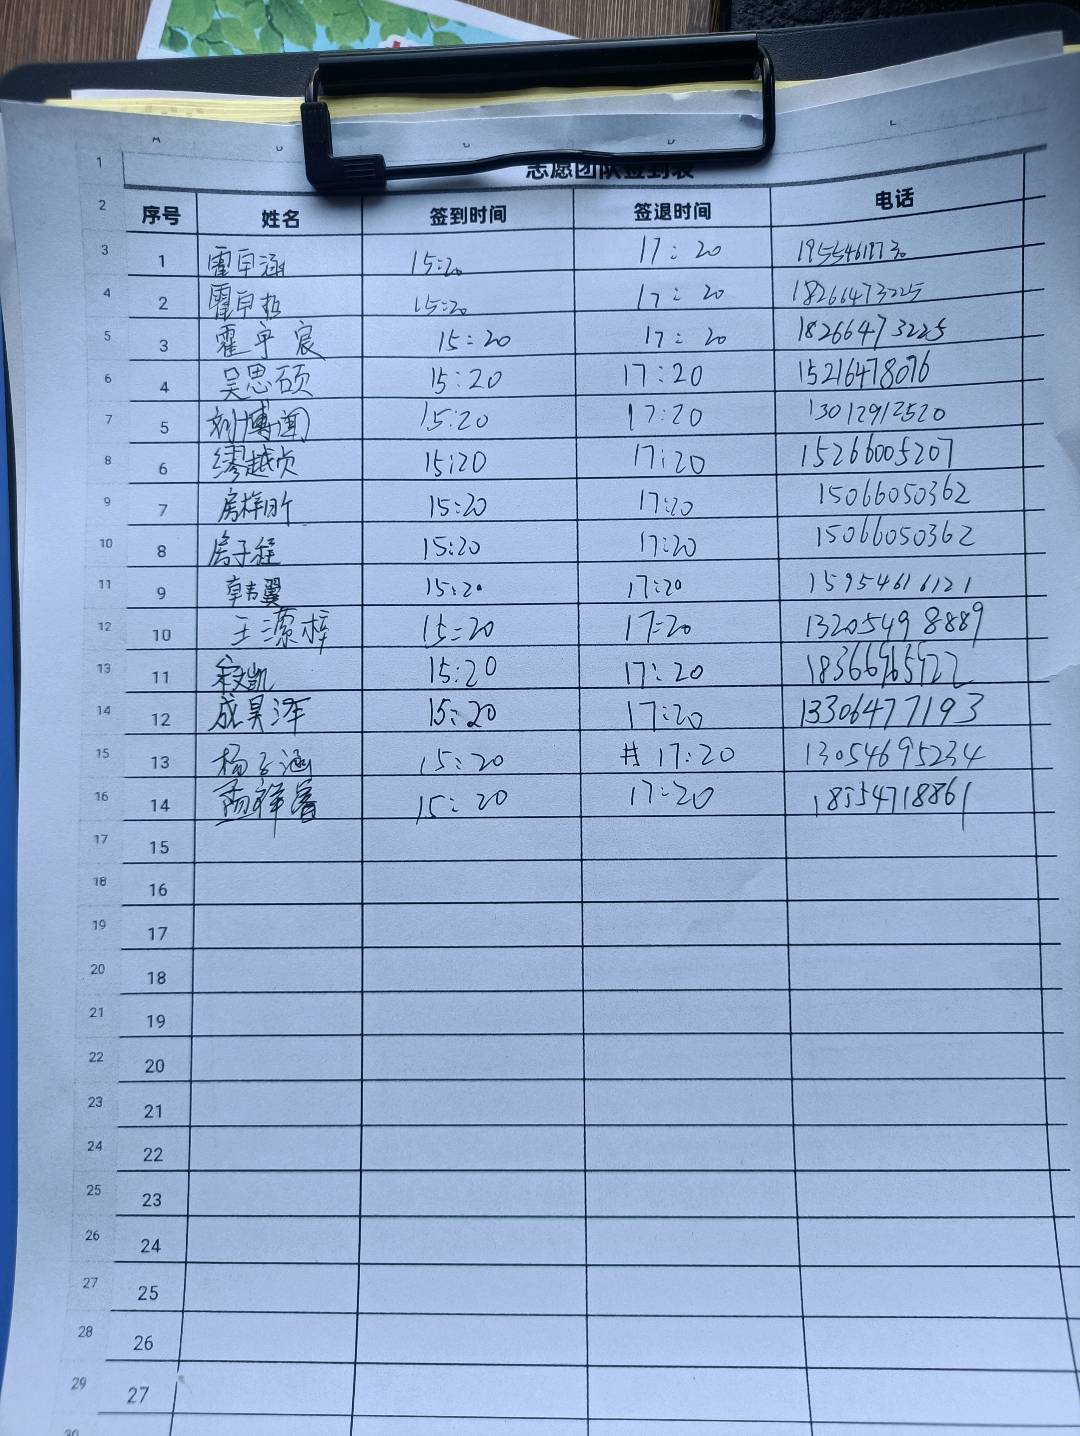 志愿团队签到表
1
2 序号 姓名 签到时间 签退时间 电话
3 1 霍 涵 15:20 17:20
4 2 霍 15:20 17:20 18266473225
5 3 霍宇宸 15:20 17:20 18266473225
6 4 吴思硕 15:20 17:20 15216478076
7 5 刘博闻 15:20 17:20 13012912520
8 6 缪越贞 15:20 17:20 15266005207
9 7 房梓昕 15:20 17:20 15066050362
10 8 房子程 15:20 17:20 15066050362
11 9 韩翼 15:20 17:20 15954616121
12 10 王 梓 15:20 17:20 13205498889
13 11 凯 15:20 17:20 18366965922
14 12 成昊泽 15:20 17:20 13306477193
15 13 杨子涵 15:20 17:20 13054695234
16 14 孟祥睿 15:20 17:20 18554718861
17 15
18 16
19 17
20 18
21 19
22 20
23 21
24 22
25 23
26 24
27 25
28 26
29 27
30